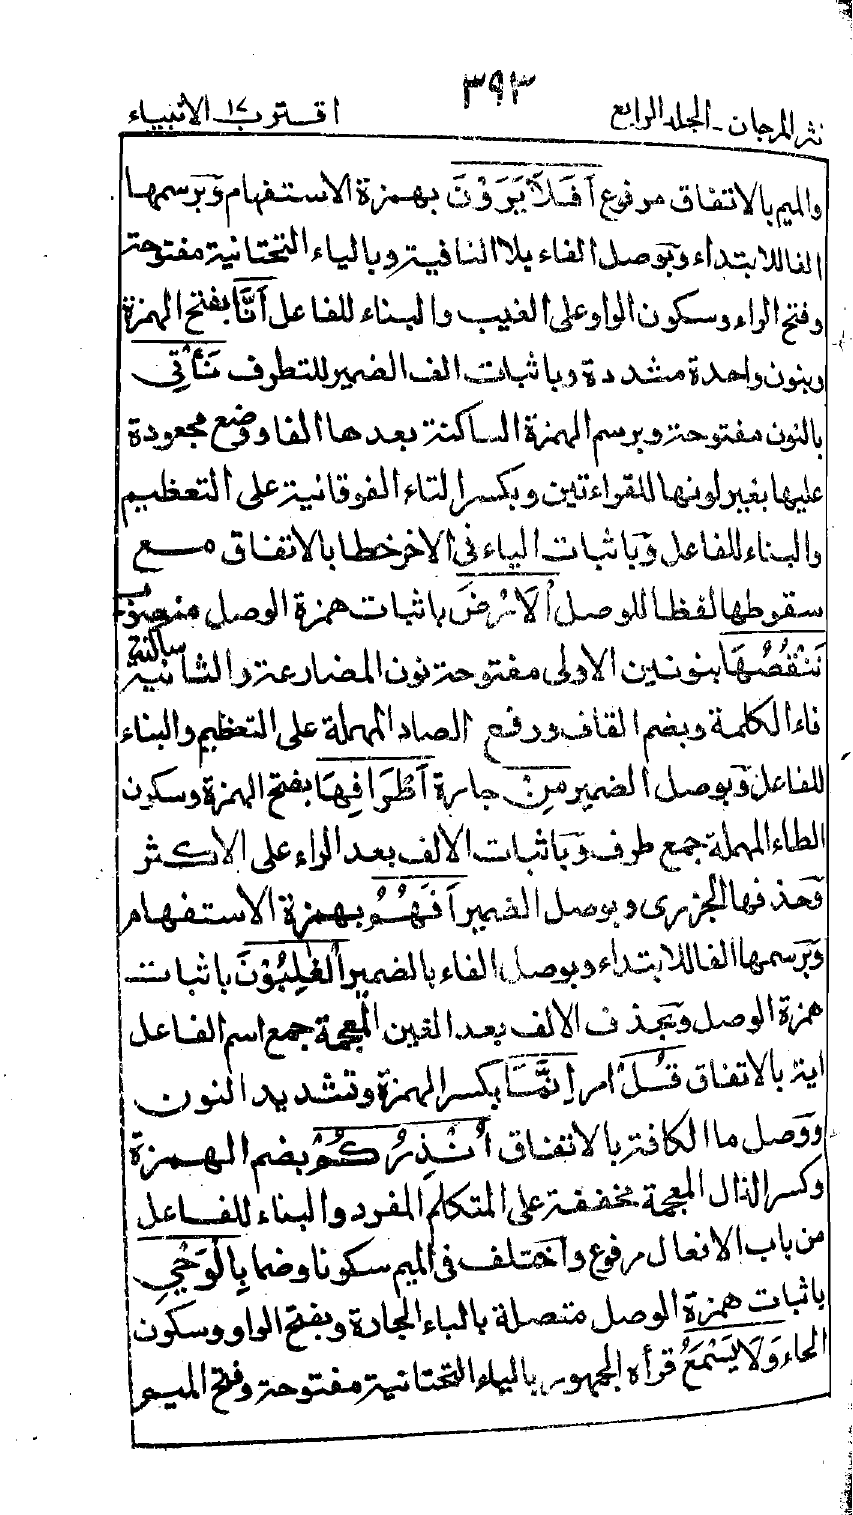 نثر المرجان - الجلد الرابع
٣٩٣
اقترب ١٧ الانبياء
والميم بالاتفاق مرفوع اَفَلَا يَرَوْنَ بهمزة الاستفهام وَبرسمها
الفا للابتداء وبوصل الفاء بلا النافية وبالياء التحتانية مفتوحة
وفتح الراء وسكون الواو على الغيب والبناء للفاعل اَنَّا بفتح الهمزة
وبنون واحدة مشددة وباثبات الف الضمير للتطرف نَأْتِى
بالنون مفتوحة وبرسم الهمزة الساكنة بعدها الفا ووضع مجعودة
عليها بغير لونها للقراءتين وبكسر التاء الفوقانية على التعظيم
والبناء للفاعل وباثبات الياء فى الاخر خطا بالاتفاق مع
سقوطها لفظا للوصل اَلْاَرْضَ باثبات همزة الوصل منصوب
نَنْقُصُهَا بنونين الاولى مفتوحة نون المضارعة والثانية ساكنة
فاء الكلمة وبضم القاف ورفع الصاد المهملة على التعظيم والبناء
للفاعل وَبوصل الضمير مِنْ جارة اَطْرَافِهَا بفتح الهمزة وسكون
الطاء المهملة جمع طرف وَباثبات الالف بعد الراء على الاكثر
وَحذفها الجزرى وبوصل الضمير اَفَهُمُ بهمزة الاستفهام
وَبرسمها الفا للابتداء وبوصل الفاء بالضمير الْغٰلِبُوْنَ باثبات
همزة الوصل وَبحذف الالف بعد الغين المعجمة جمع اسم الفاعل
اية بالاتفاق قُلْ امر اِنَّمَا بكسر الهمزة وتشديد النون
وَوصل ما الكافة بالاتفاق اُنْذِرُكُمْ بضم الهمزة
وكسر الذال المعجمة مخففة على المتكلم المفرد والبناء للفاعل
من باب الافعال مرفوع واختلف فى الميم سكونا وضما بِالْوَحْيِ
باثبات همزة الوصل متصلة بالباء الجارة وبفتح الواو وسكون
الحاء وَلَا يَسْمَعُ قرأه الجمهور بالياء التحتانية مفتوحة وفتح الميم